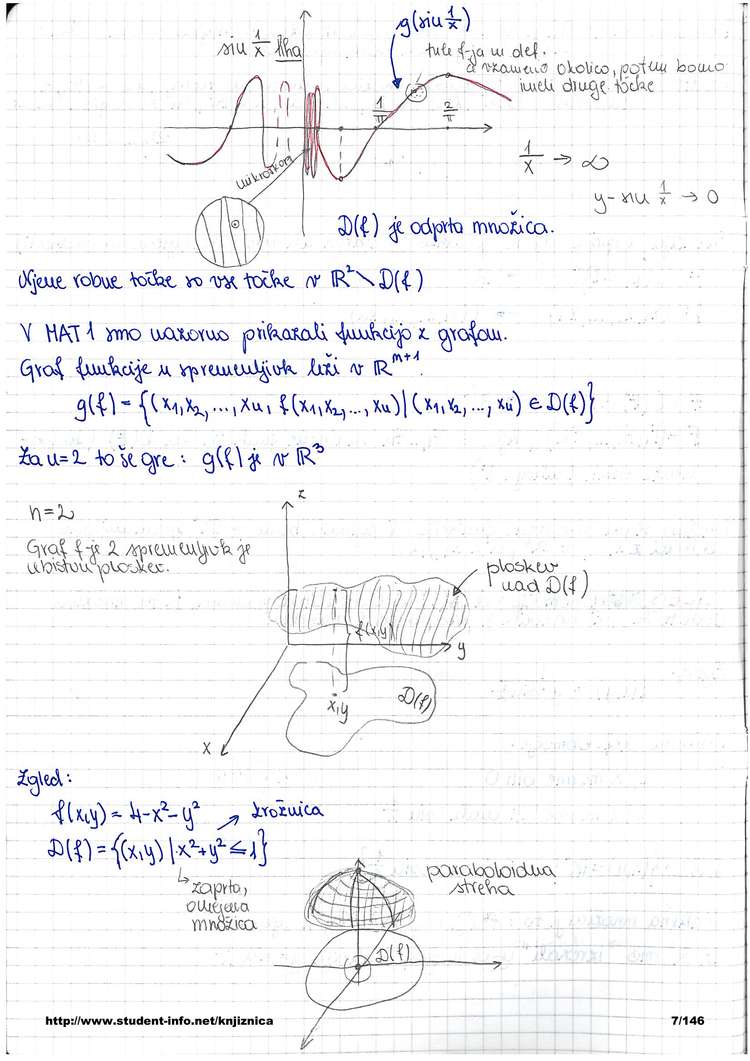 sin 1/x
g(sin 1/x)
tule f-ja ni def.
če vzamemo okolico, potem bomo
imeli druge točke
1/π
2/π
1/x → ∞
y - sin 1/x → 0
mikroskop
D(f) je odprta množica.
Njene robne točke so vse točke v ℝ² \ D(f)
V MAT 1 smo nazorno prikazali funkcijo z grafom.
Graf funkcije n spremenljivk leži v ℝⁿ⁺¹.
g(f) = {(x₁, x₂, ..., xn, f(x₁, x₂, ..., xn) | (x₁, x₂, ..., xn) ∈ D(f)}
Za n=2 to še gre: g(f) je v ℝ³
n=2
z
Graf f-je 2 spremenljivk je
v bistvu ploskev.
ploskev
nad D(f)
f(x,y)
y
x,y
D(f)
x
Zgled:
f(x,y) = 4-x²-y²
krožnica
D(f) = {(x,y) | x²+y² ≤ 1}
zaprta,
omejena
množica
paraboloidna
streha
D(f)
http://www.student-info.net/knjiznica
7/146